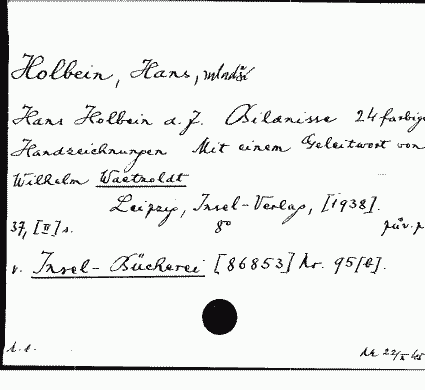 Holbein, Hans, mladší
Hans Holbein d. J. Bildnisse 24 farbige
Handzeichnungen Mit einem Geleitwort von
Wilhelm Waetzoldt
Leipzig, Insel-Verlag, [1938].
37, [II] s. 8° pův. p
v. Insel-Bücherei [86853] Nr. 95[b].